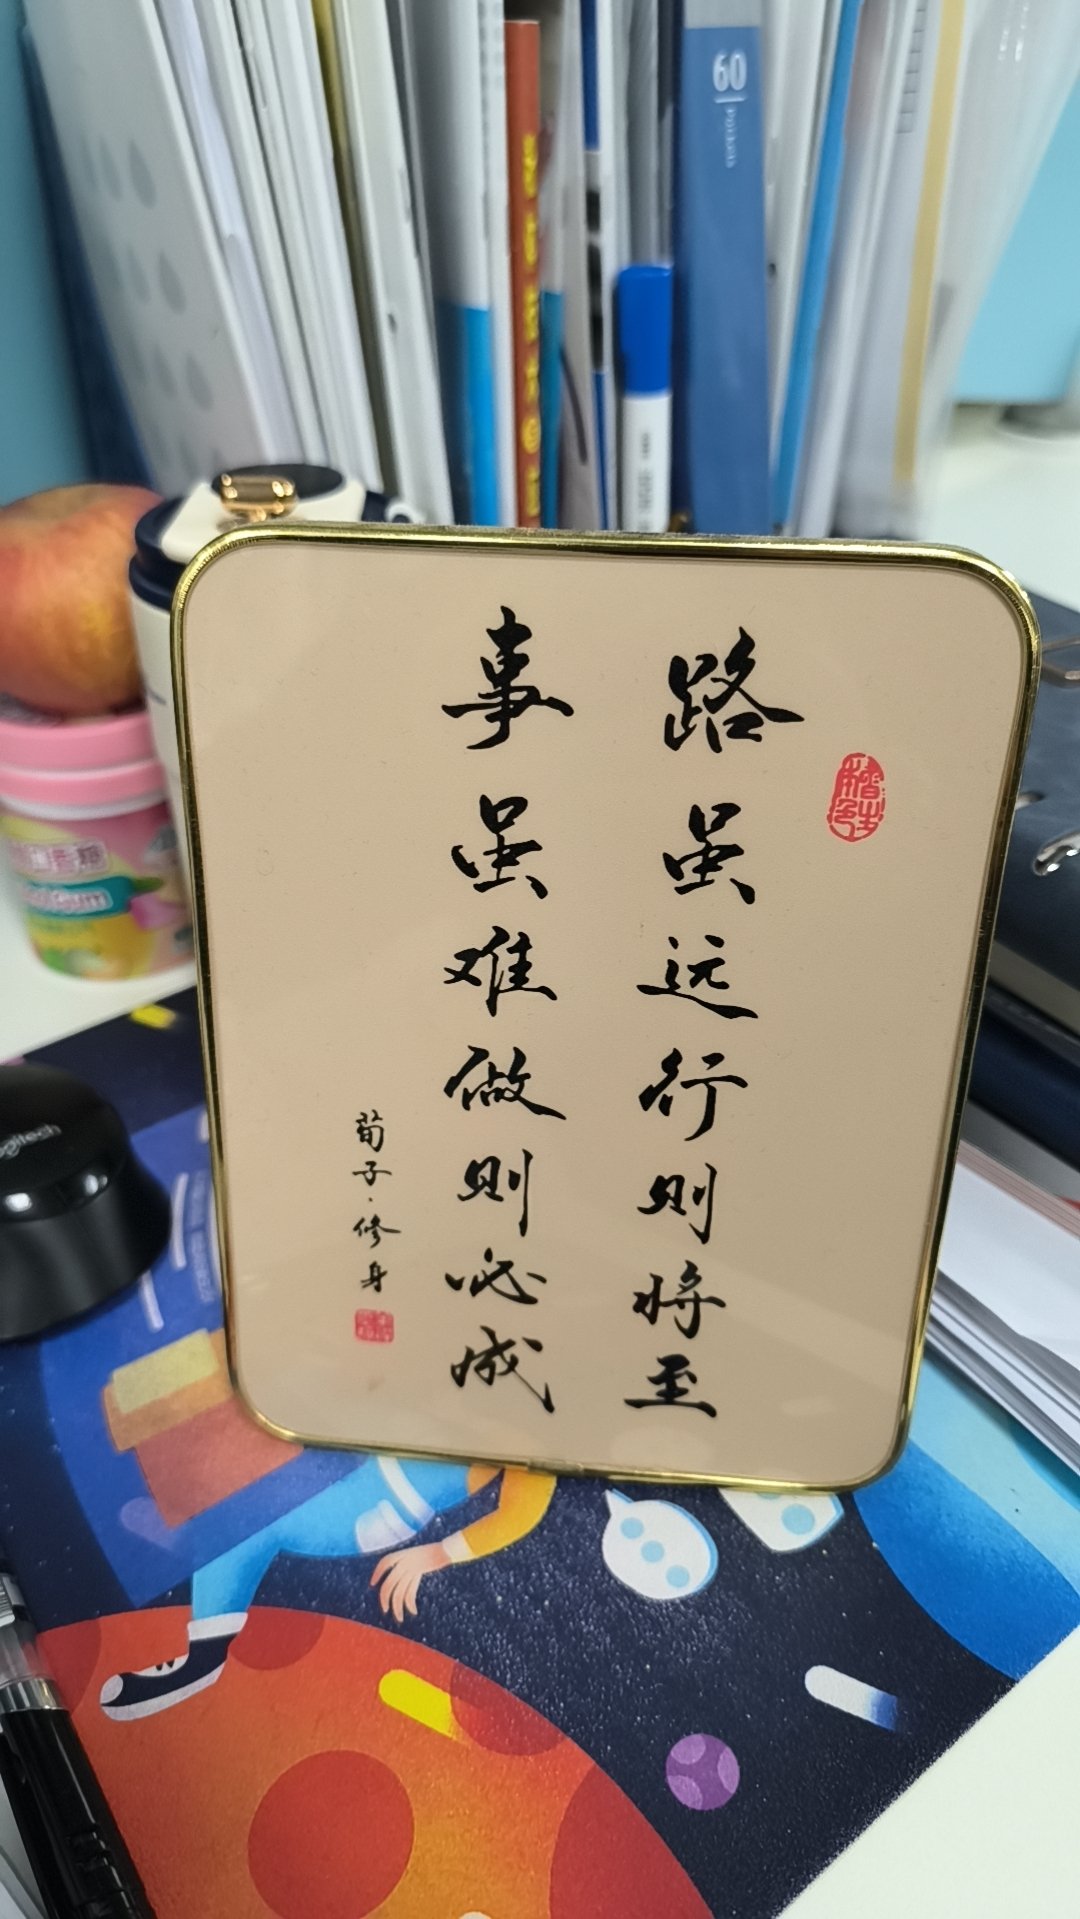 路虽远行则将至
事虽难做则必成
荀子·修身
60
Pockets